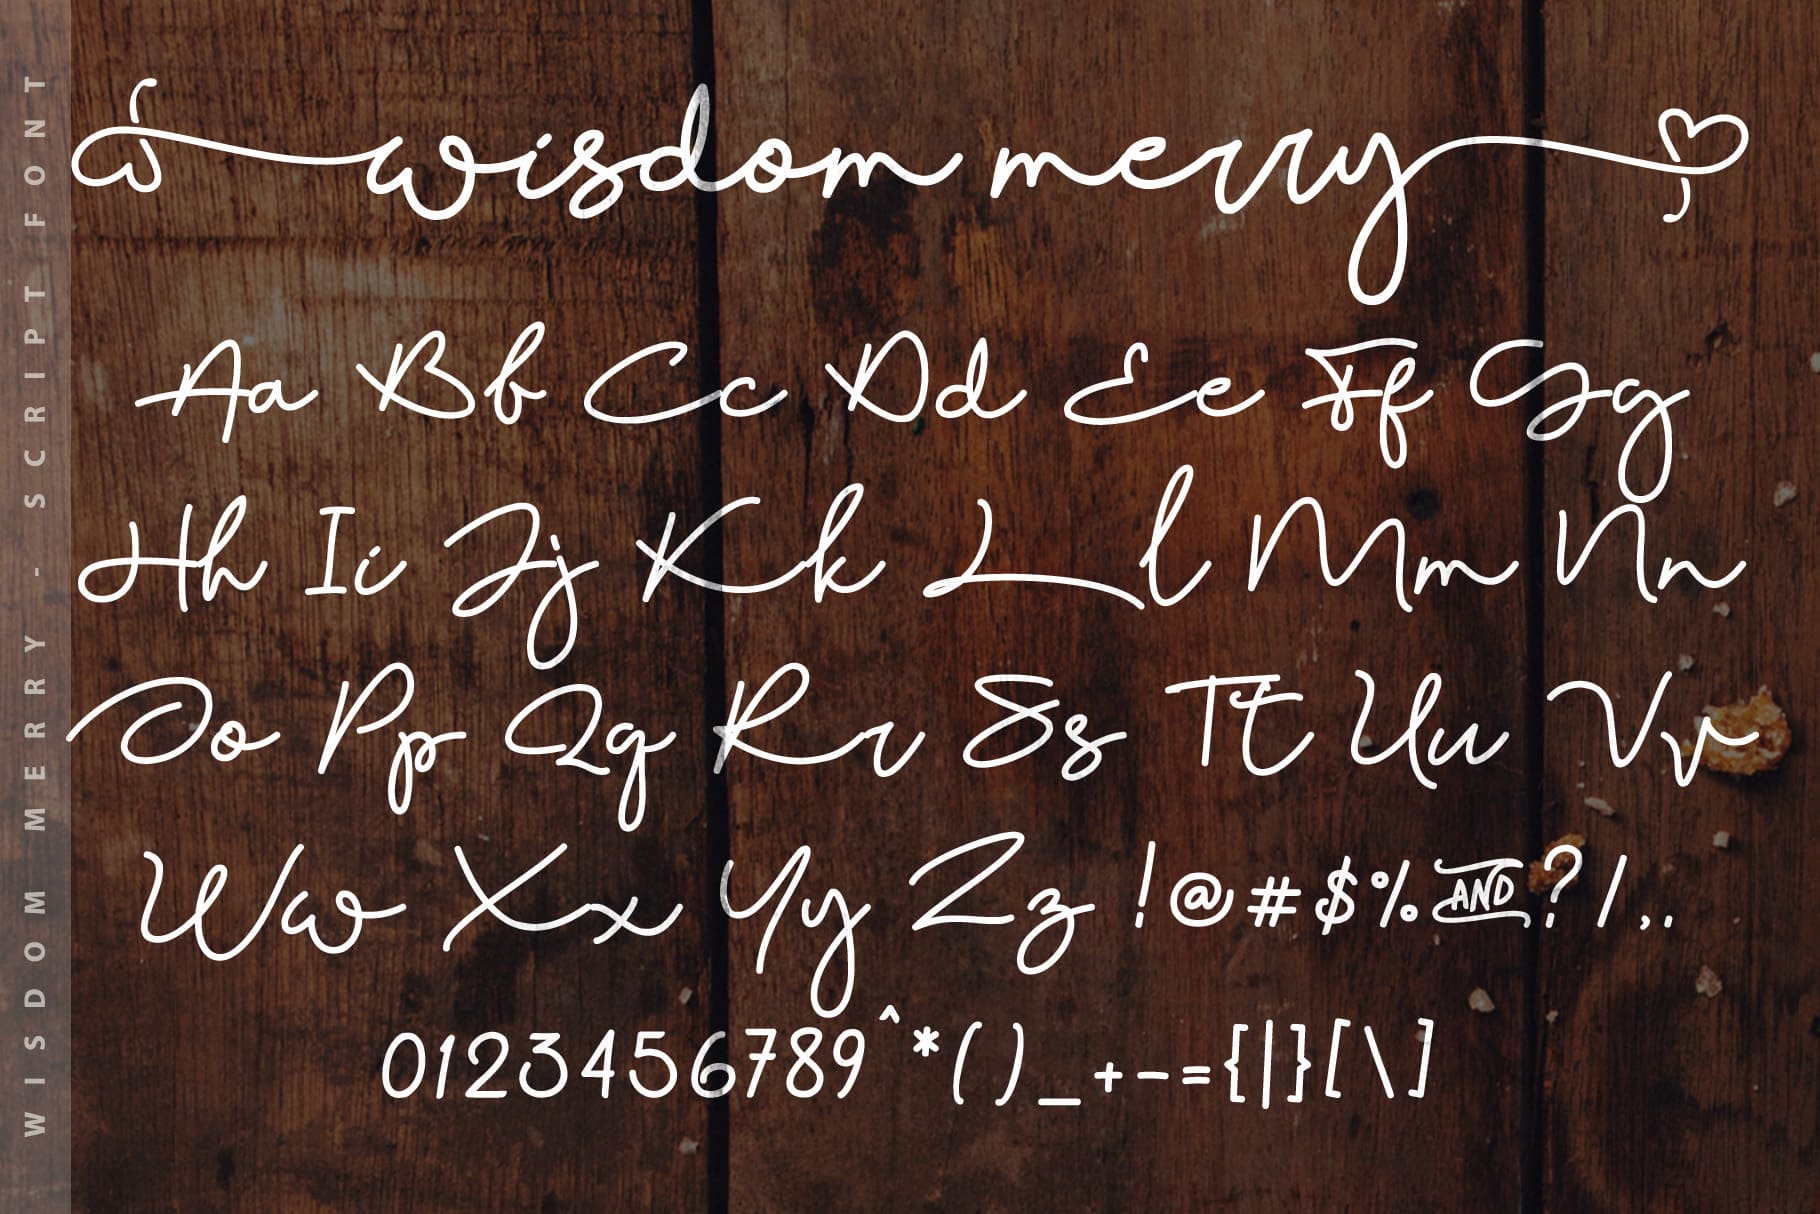 WISDOM MERRY - SCRIPT FONT
wisdom merry
Aa Bb Cc Dd Ee Ff Gg
Hh Ii Jj Kk Ll Mm Nn
Oo Pp Qq Rr Ss Tt Uu Vv
Ww Xx Yy Zz !@#$%AND?/,.
0123456789^*()_+-={|}[\]